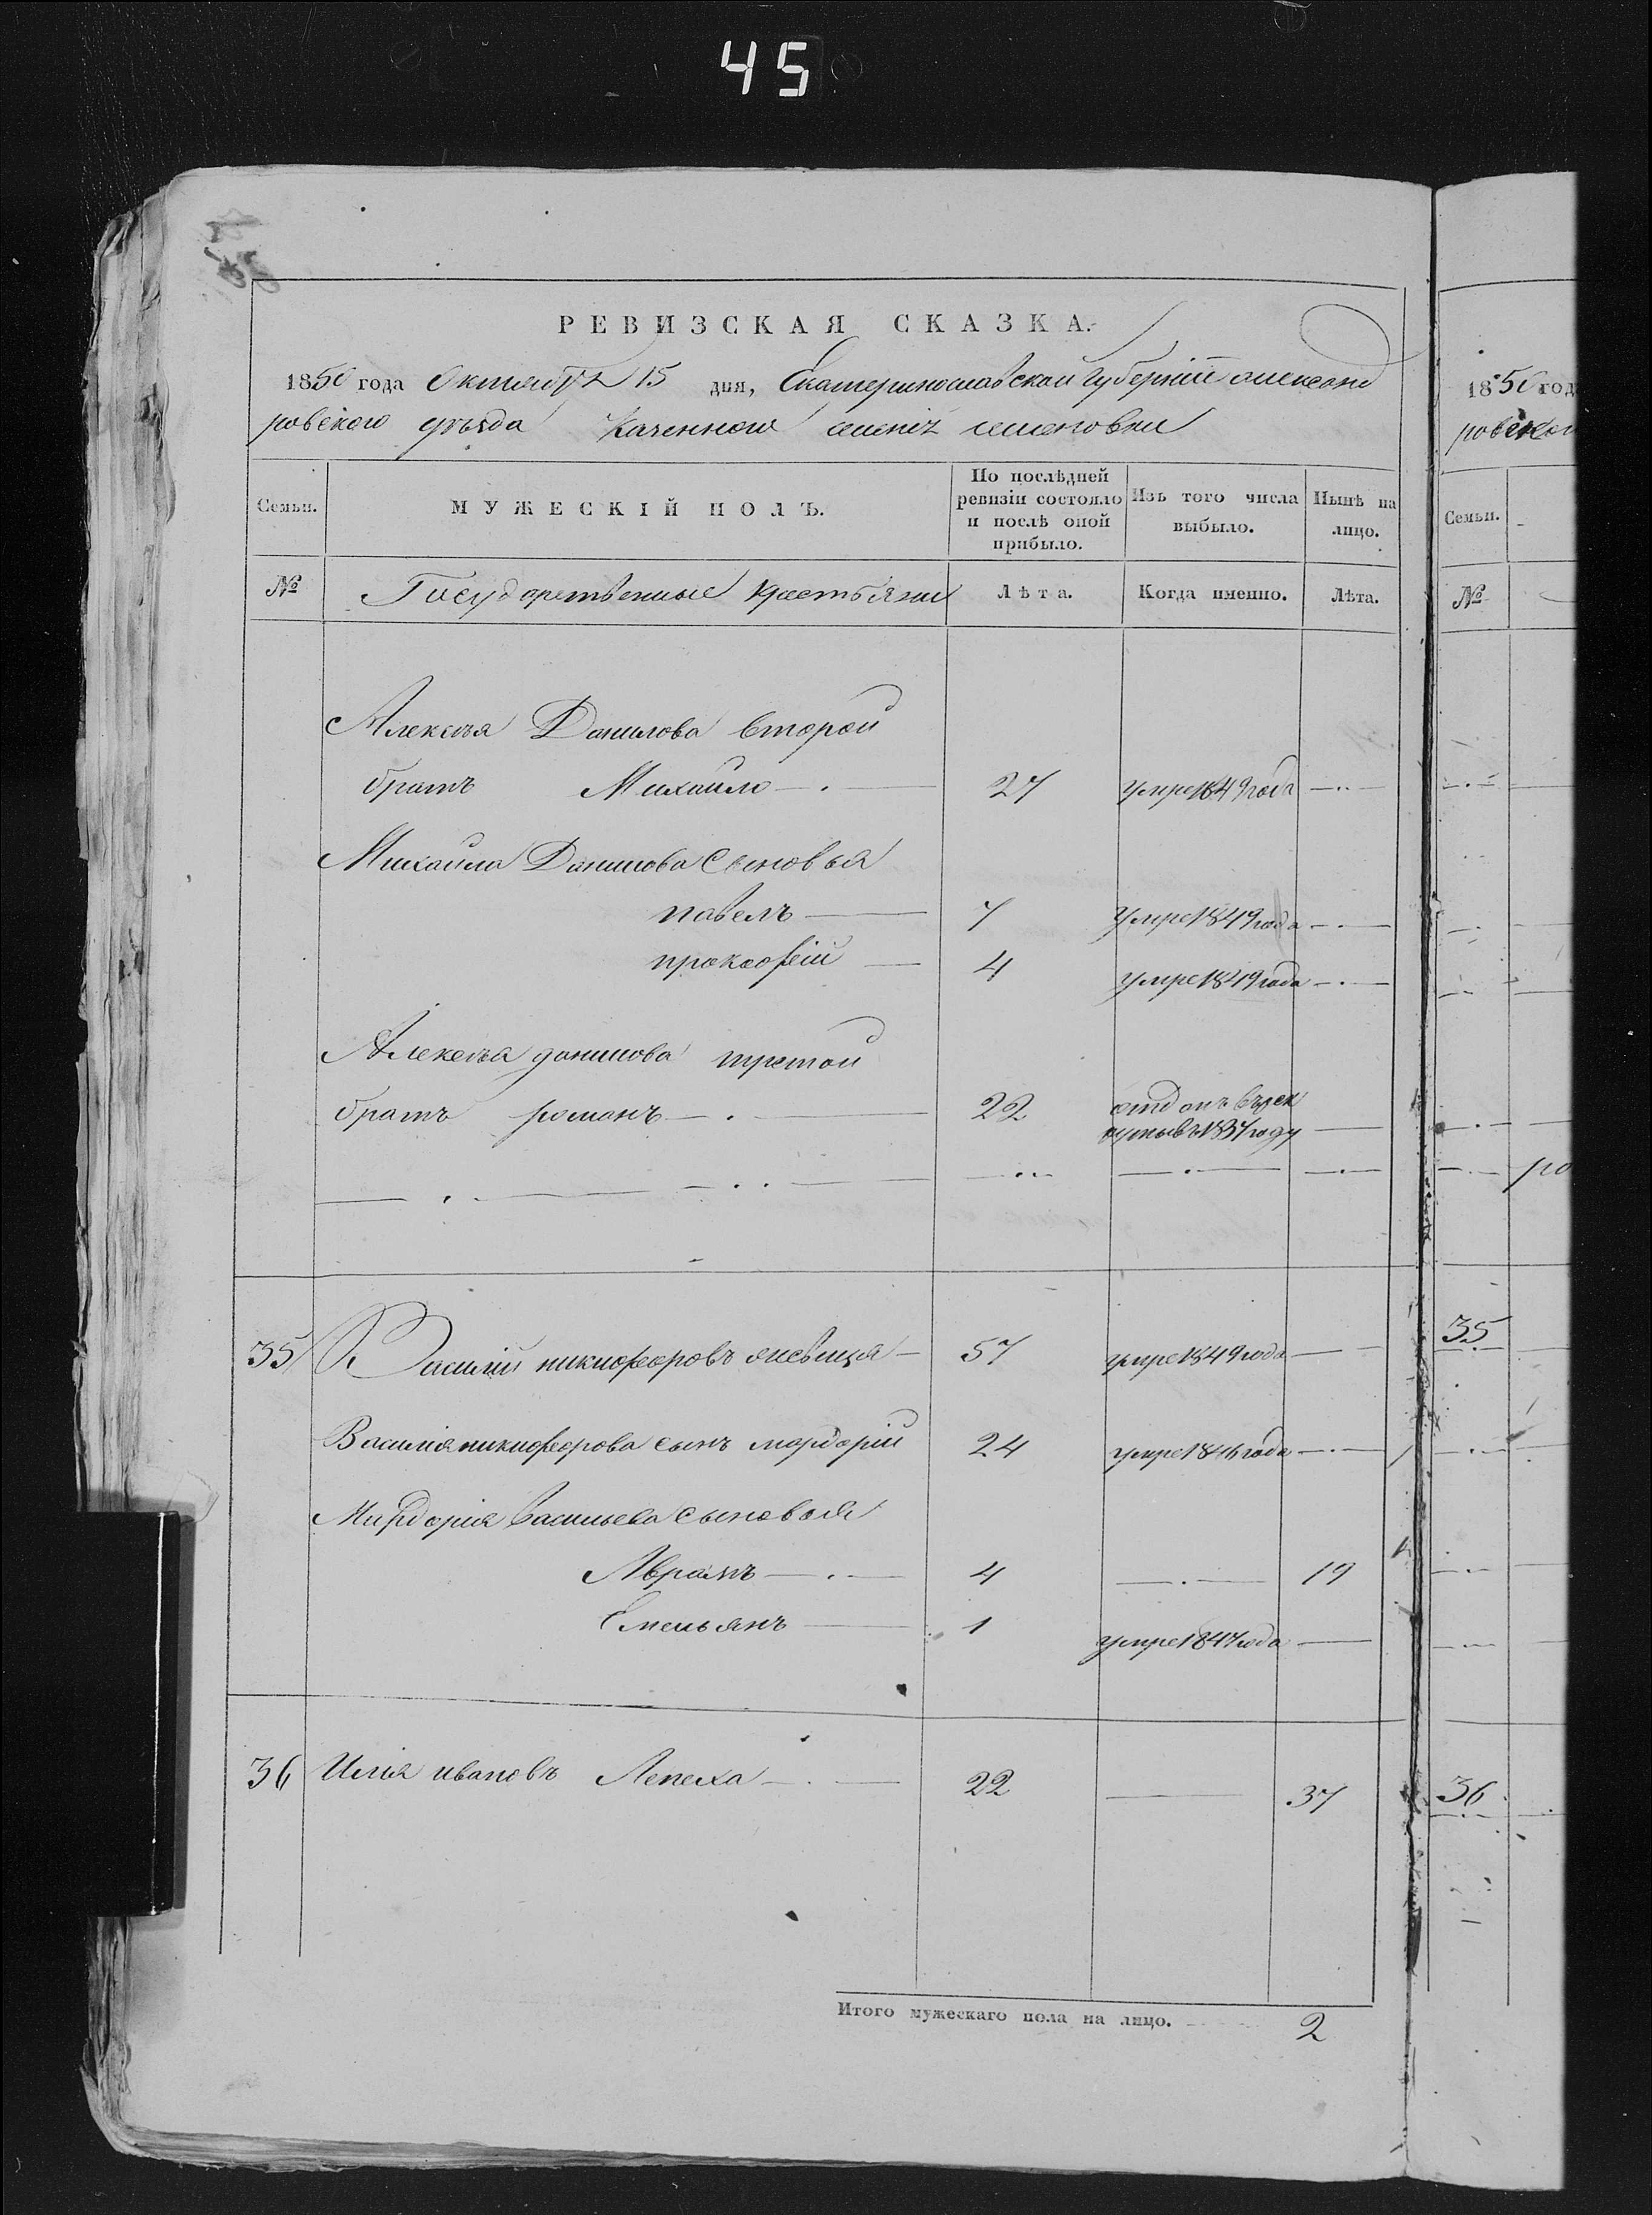 45
РЕВИЗСКАЯ СКАЗКА.
1850 года Октября 15 дня, Екатеринославской губерніи александ
ровского уѣзда Казенного селенія семеновки
Семьи.
МУЖЕСКІЙ ПОЛЪ.
По послѣдней ревизіи состояло и послѣ оной прибыло.
Изъ того числа выбыло.
Нынѣ на лицо.
№ Государственные крестьяни Лѣта. Когда именно. Лѣта.
Алексѣя Данилова второй
братъ Михаило 27 умре 1849 года
Михаила Данилова сыновья
павелъ 7 умре 1849 года
прокофій 4 умре 1849 года
Алексѣя данилова третой
братъ романъ 22 отданъ въ рек
руты въ 1837 году
35 Василій никифоровъ 57 умре 1849 года
Василія никифорова сынъ мардарій 24 умре 1846 года
Мардарія васильева сыновья
Аврамъ 4 19
Емельянъ 1 умре 1847 года
36 Илія ивановъ Лепеха 22 37
Итого мужескаго пола на лицо. 2
1850 год
ровского
Семьи.
№
ро
35
36